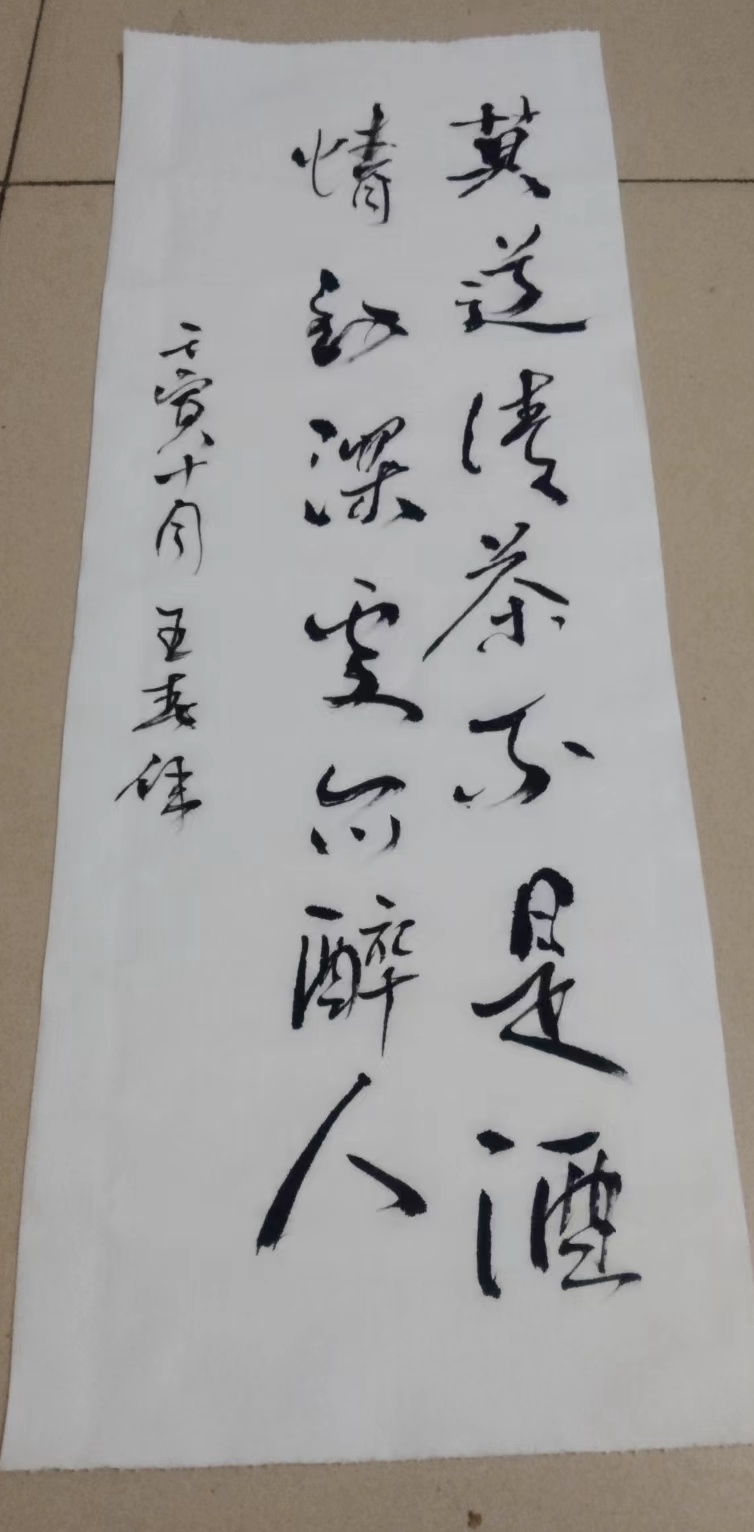 莫道清茶不是酒
情到深处亦醉人
壬寅十月 王春